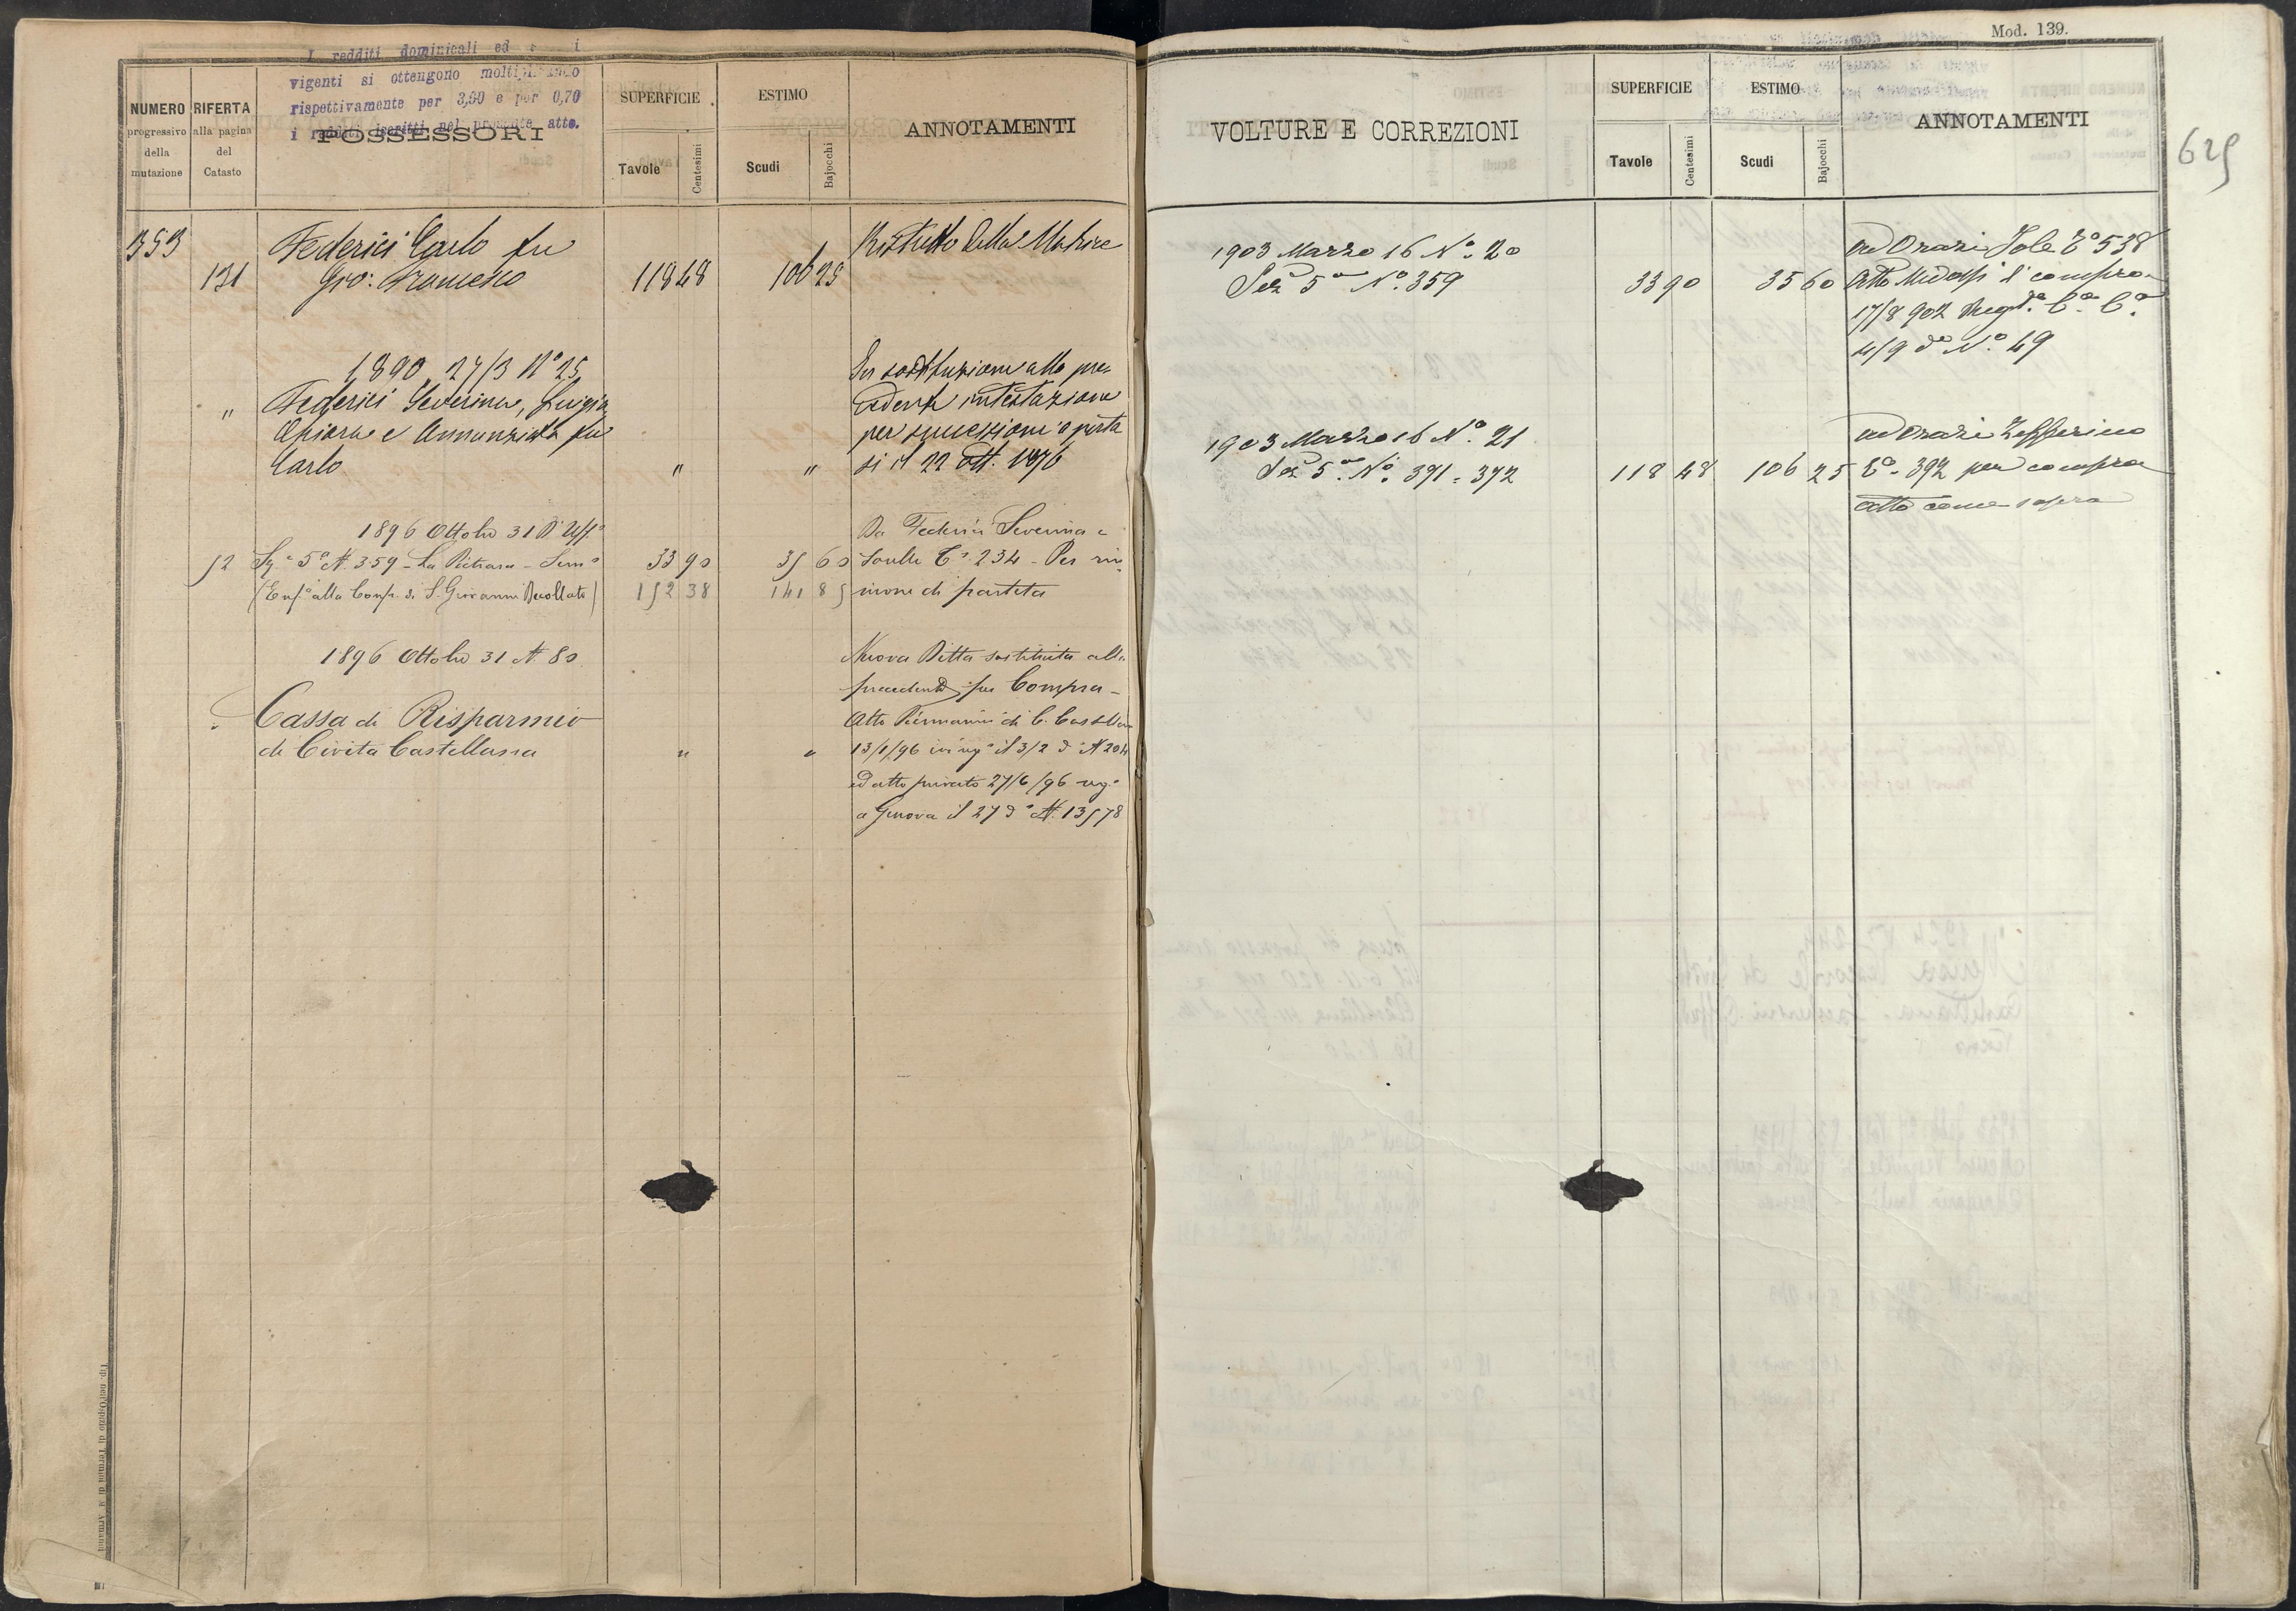 I redditi dominicali ed
vigenti si ottengono moltiplicando
rispettivamente per 3,90 e per 0,70
i redditi iscritti nel presente atto.
NUMERO progressivo della mutazione
RIFERTA alla pagina del Catasto
POSSESSORI
SUPERFICIE
Tavole Centesimi
ESTIMO
Scudi Bajocchi
ANNOTAMENTI
353 Federici Carlo fu
131 Gio: Francesco 118 48 106 25 Ristretto della Matrice
1890, 27/3 N° 25
" Federici Severina, Luigia,
Chiara e Annunziata fu
Carlo " "
Per sostituzione alla pre-
cedente intestazione
per successione aperta
si il 22 Ott. 1876
1896 Ottobre 31 D'Uff°
52 Sez. 5a N. 359 - La Pietrara - Sem°
33 90 35 60
(Enf. alla Conf. di S. Giovanni Decollato)
152 38 141 85
Da Federici Severina e
Sorelle C° 234 - Per riu-
nione di partita
1896 Ottobre 31 N 80
" Cassa di Risparmio
di Civita Castellana " "
Nuova Ditta sostituita alla
precedente per Compra -
Atto di C. Castellana
13/1/96 ivi reg° il 3/2 d° N 204
ed atto privato 27/6/96 reg°
a Genova il 27 d° N. 13578
Mod. 139.
VOLTURE E CORREZIONI
SUPERFICIE
Tavole Centesimi
ESTIMO
Scudi Bajocchi
ANNOTAMENTI
625
1903 Marzo 16 N° 20
Sez 5a N° 359 33 90 35 60
ad Orazi Iole C° 538
Atto di compra
17/8 902 Reg° C. C.
4/9 d° N° 49
1903 Marzo 16 N° 21
Sez 5a N° 371 = 372 118 48 106 25
ad Orazi Zefferino
C° 392 per compra
atto come sopra